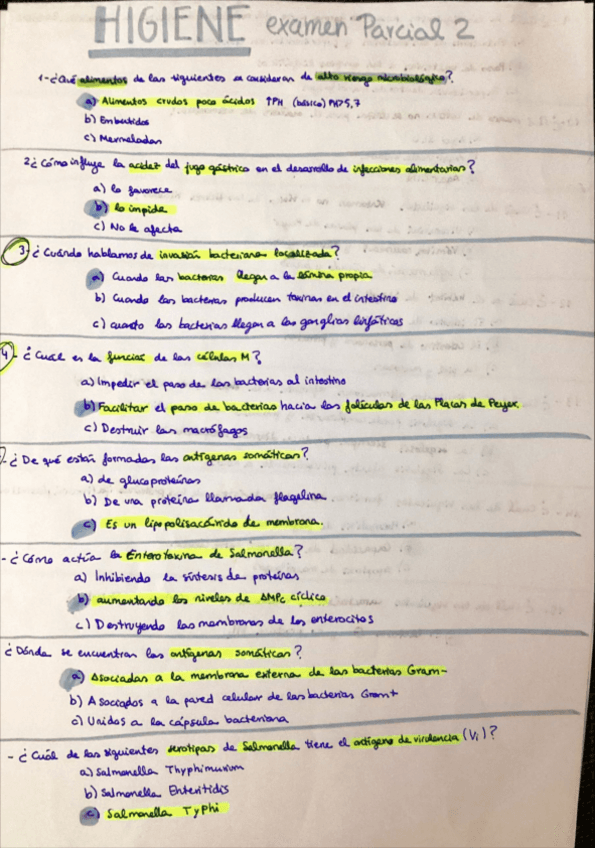 HIGIENE examen Parcial 2
1-¿Qué alimentos de los siguientes se consideran de alto riesgo microbiológico?
a) Alimentos crudos poco ácidos ↑PH (básico) PH>5,7
b) Embutidos
c) Mermeladas
2¿Cómo influye la acidez del jugo gástrico en el desarrollo de infecciones alimentarias?
a) lo favorece
b) lo impide
c) No le afecta
3-¿Cuándo hablamos de invasión bacteriana localizada?
a) Cuando las bacterias llegan a la lámina propia
b) Cuando las bacterias producen toxinas en el intestino
c) cuando las bacterias llegan a los ganglios linfáticos
4- ¿Cuál es la función de las células M?
a) Impedir el paso de las bacterias al intestino
b) Facilitar el paso de bacterias hacia los folículos de las Placas de Peyer.
c) Destruir los macrófagos
-¿De qué están formados los antígenos somáticos?
a) de glucoproteínas
b) De una proteína llamada flagelina.
c) Es un lipopolisacárido de membrana.
-¿Cómo actúa la Enterotoxina de Salmonella?
a) Inhibiendo la síntesis de proteínas
b) aumentando los niveles de AMPc cíclico
c) Destruyendo las membranas de los enterocitos
¿Dónde se encuentran los antígenos somáticos?
a) Asociados a la membrana externa de las bacterias Gram-
b) Asociados a la pared celular de las bacterias Gram+
c) Unidos a la cápsula bacteriana
-¿Cuál de los siguientes serotipos de Salmonella tiene el antígeno de virulencia (Vi)?
a) Salmonella Thyphimurium
b) Salmonella Enteritidis
c) Salmonella Typhi